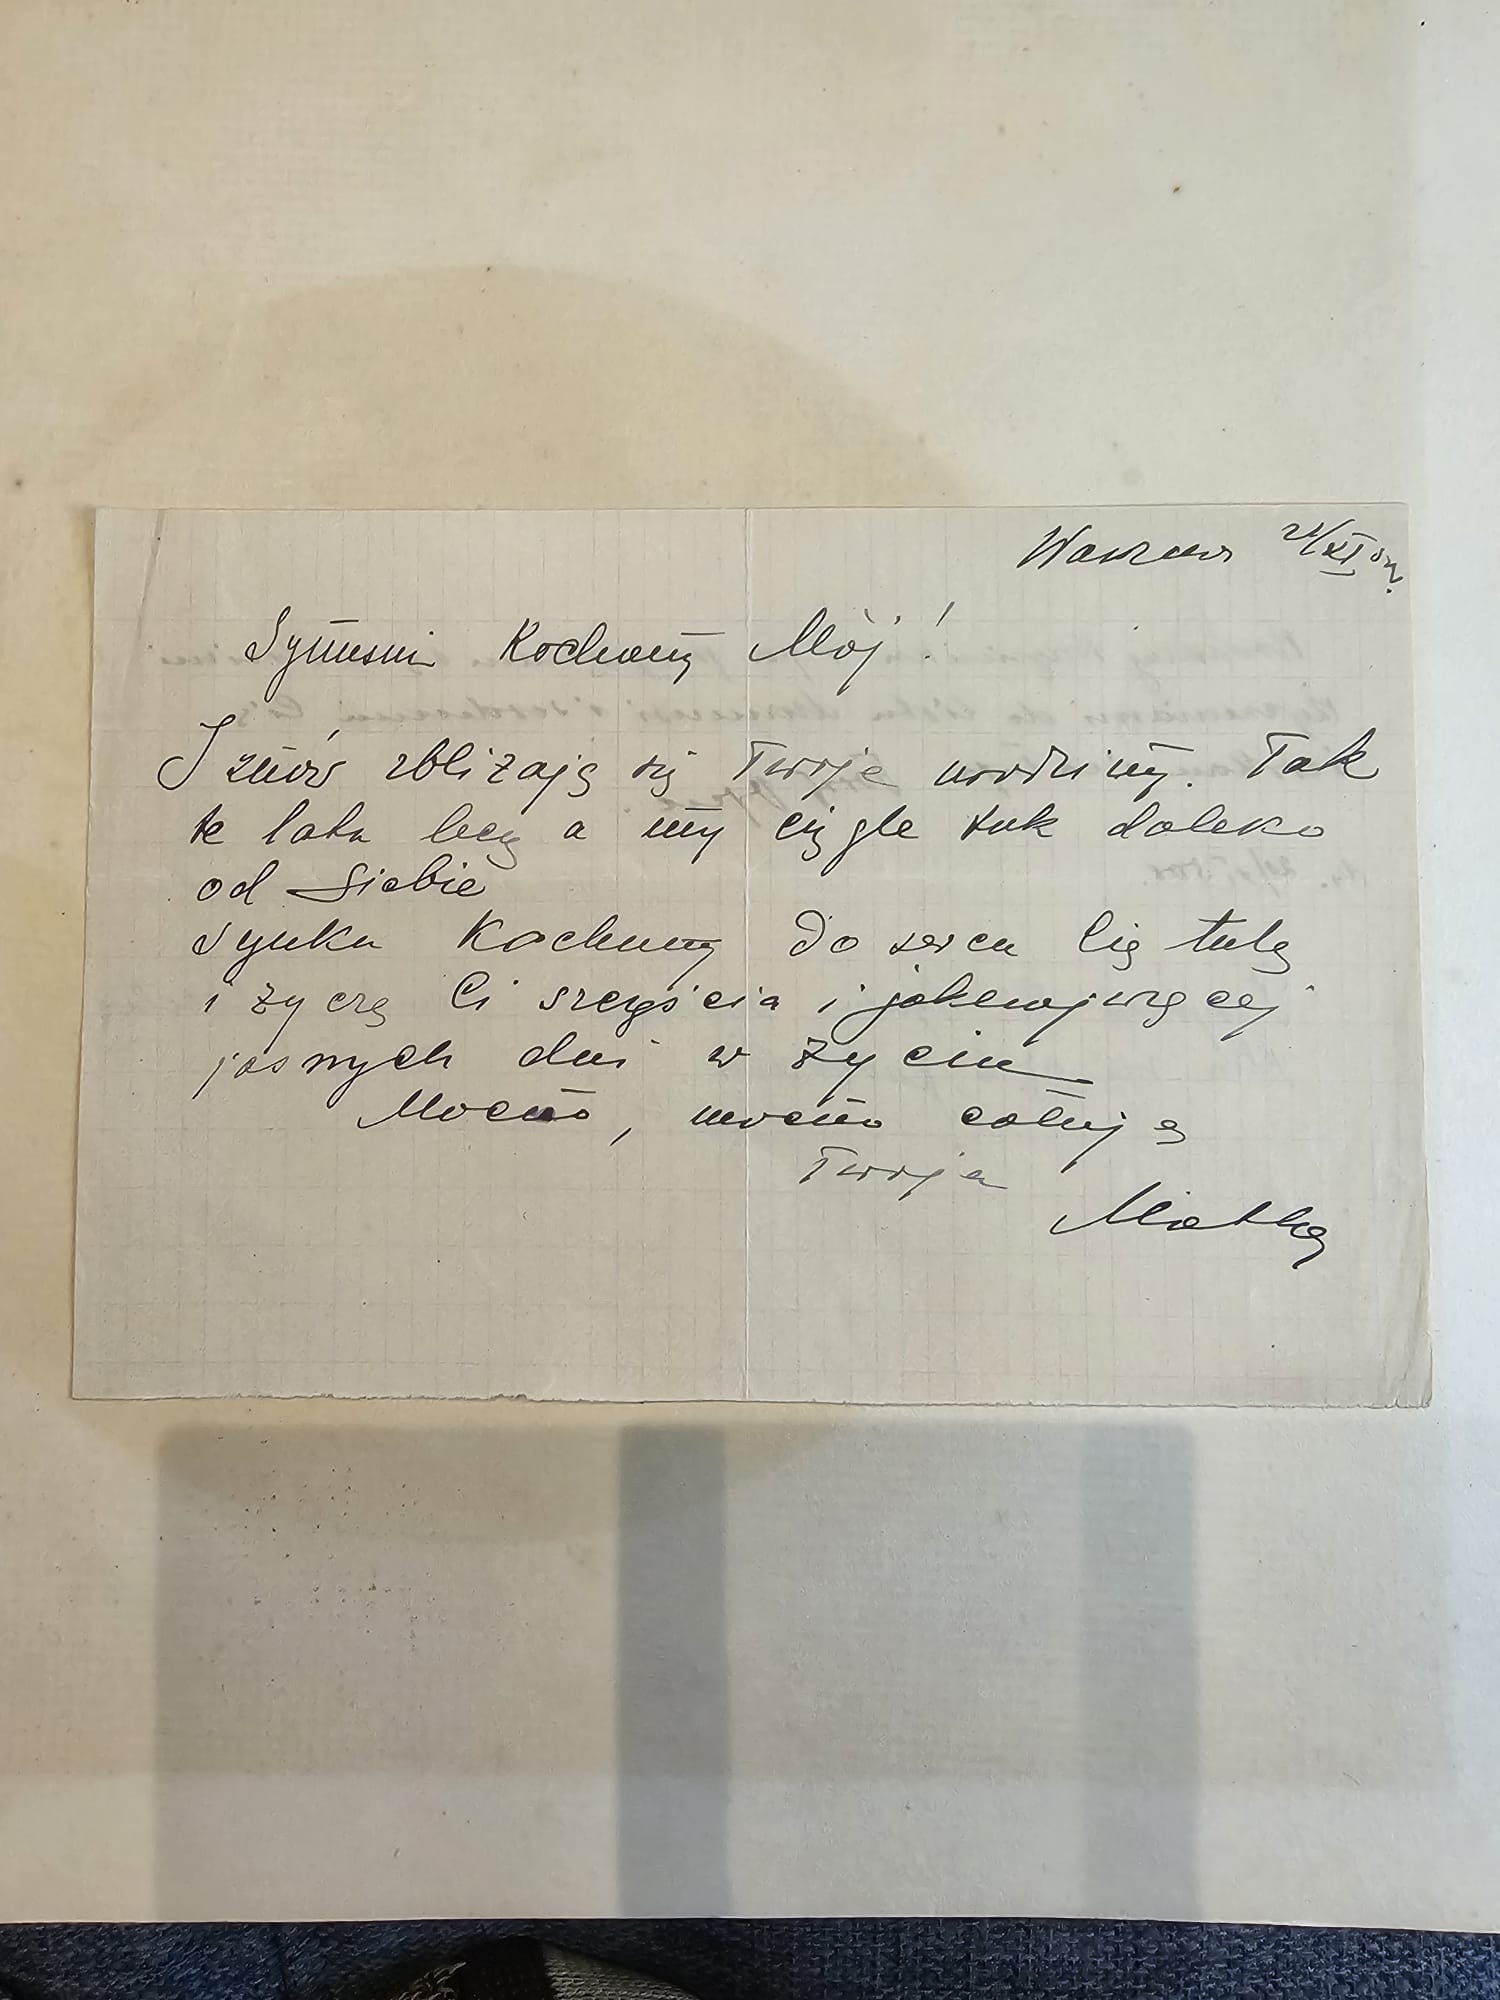 Warszawa 21/XI
Synusiu Kochany Mój!
I znów zbliżają się Twoje urodziny. Tak
te lata lecą a my ciągle tak daleko
od siebie
Synku Kochany do serca Cię tulę
i życzę Ci szczęścia i jaknajwięcej
jasnych dni w życiu
Mocno, mocno całuję
Twoja
Matka